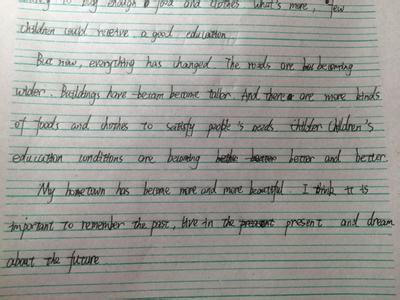 to buy enough food and clothes what's more, few
children could receive a good education.
But now, everything has changed. The roads are becoming
wider. Buildings have become taller. And there are more kinds
of foods and clothes to satisfy people's needs. Children's
education conditions are becoming better and better.
My hometown has become more and more beautiful. I think it is
important to remember the past, live in the present and dream
about the future